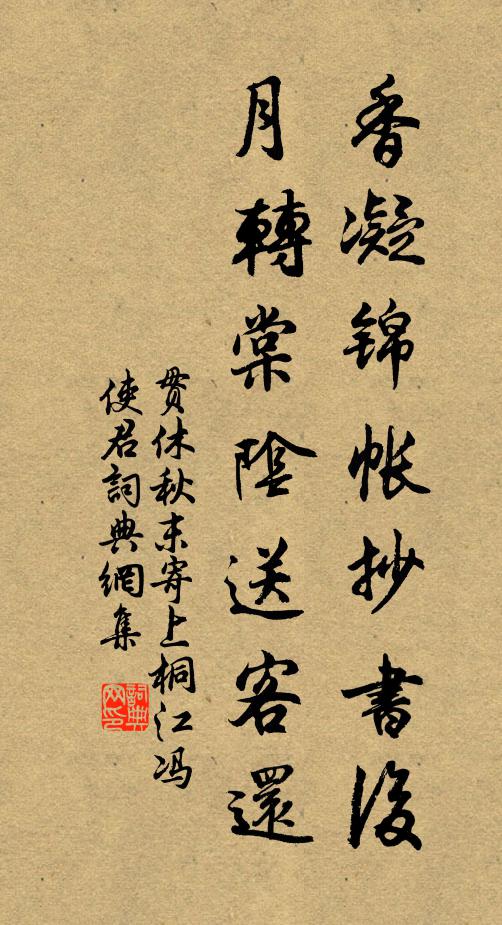 香凝锦帐抄書後
月轉棠陰送客還
贯休秋末寄上桐江冯
使君詞典網集
詞典网印